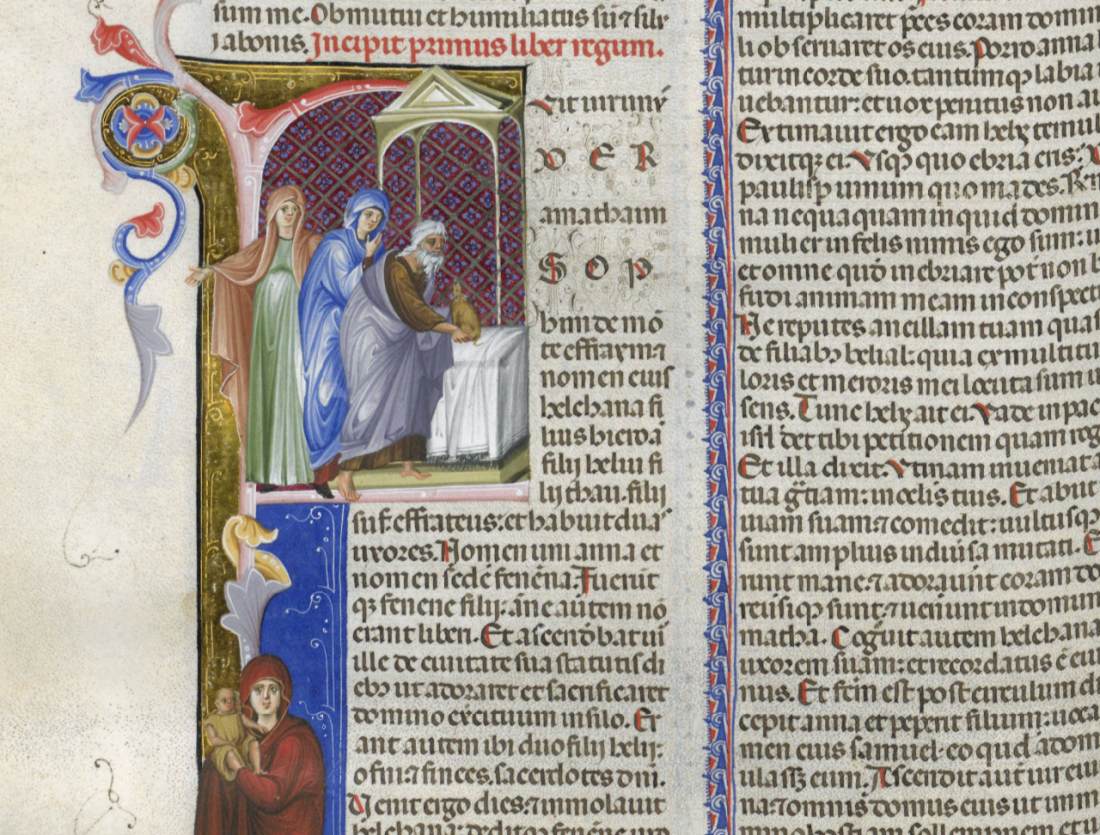 sum me. Obmutui et humiliatus sū ⁊ silu
a bonis. Incipit primus liber regum.
Fit uir unꝰ
D E R
amathaim
S O P
him de mō
te effraym ⁊
nomen eius
helchana fi
lius hieroā
filij heliu fi
lij thau. filij
suf effrateus: et habuit duaˢ
uxores. Nomen uni anna et
nomen sēdē fenēna. Fuerūt
qꝫ fenene filij: āne autem nō
erant liberi. Et ascendebat uir
ille de ciuitate sua statutis di
ebꝫ ut adoraret et sacrificaret
domino exercituum in silo. Er
ant autem ibi duo filij heli:
ofni ⁊ finees. sacerdotes dn̄i.
Uenit ergo dies ⁊ immolauit
helchana: deditqꝫ fenēne uxo
multiplicaret p̄ces coram domin
li obseruaret os eius. Porro anna
tur in corde suo. tantumqꝫ labia
uebantur: et uox penitus non au
Extimauit ergo eam hely temul
dixitqꝫ ei. Usqꝫ quo ebria eris:
paulisꝑ uinum quo mades. Rn̄
na nequaquam inquid domin
mulier infelix nimis ego sum: ui
et omne quō inebriare pōt non b
fudi animam meam in conspect
Ne reputes ancillam tuam quas
de filiabꝫ belial: quia ex multitu
loris et meroris mei locuta sum u
sens. Tunc hely ait ei. Uade in pac
isr̄l det tibi petitionem quam rog
Et illa dixit. Utinam inueniat a
tua gr̄tiam: in oclis tuis. Et abiit
uiam suam ⁊ comedit: uultusqꝫ
sunt amplius in diuisa mutati. E
runt mane. ⁊ adorauunt coram do
reūsiqꝫ sunt: ⁊ uenīunt in domum
matha. Cogūit autem helchana
uxorem suam: et recordatus ē eiu
nus. Et fēm est post circulum di
cepit anna et peperit filium: uoca
men eius samuel: eo quod a dom
ulasꝫ eum. Ascendit aut uir eiu
na: ⁊ omnis domus eius ut imm